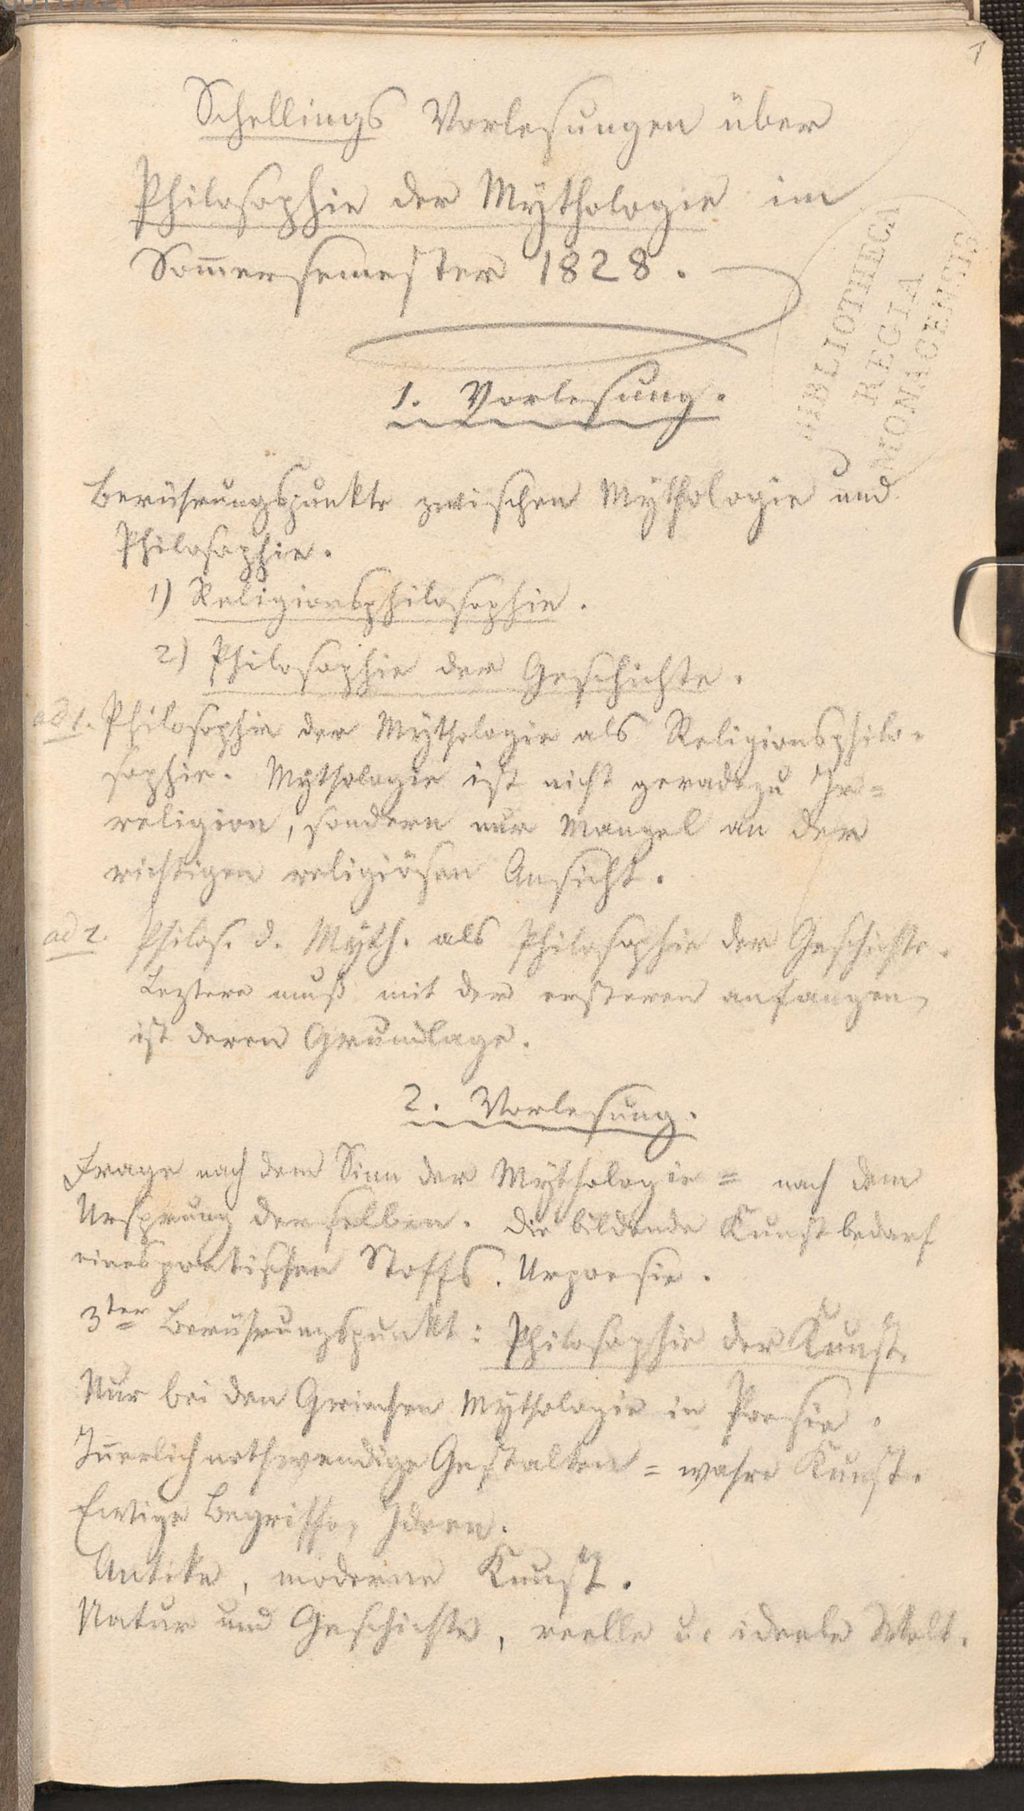 1
Schellings Vorlesungen über
Philosophie der Mythologie im
Som̅ersemester 1828.
BIBLIOTHECA
REGIA
MONACENSIS
1. Vorlesung.
Berührungspunkte zwischen Mythologie und
Philosophie.
1) Religionsphilosophie.
2) Philosophie der Geschichte.
ad 1. Philosophie der Mythologie als Religionsphilo-
sophie. Mythologie ist nicht geradezu Ir=
religion, sondern nur Mangel an der
richtigen religiösen Ansicht.
ad 2. Philos. d. Myth. als Philosophie der Geschichte.
Leztere muß mit der ersteren anfangen,
ist deren Grundlage.
2. Vorlesung.
Frage nach dem Sinn der Mythologie = nach dem
Ursprung derselben. Die bildende Kunst bedarf
eines poetischen Stoffs. Urpoesie.
3ter Berührungspunkt: Philosophie der Kunst.
Nur bei den Griechen Mythologie in Poesie.
In̅erlich nothwendige Gestalten = wahre Kunst.
Ewige Begriffe, Ideen.
Antike, moderne Kunst.
Natur und Geschichte, reelle u. ideele Welt.